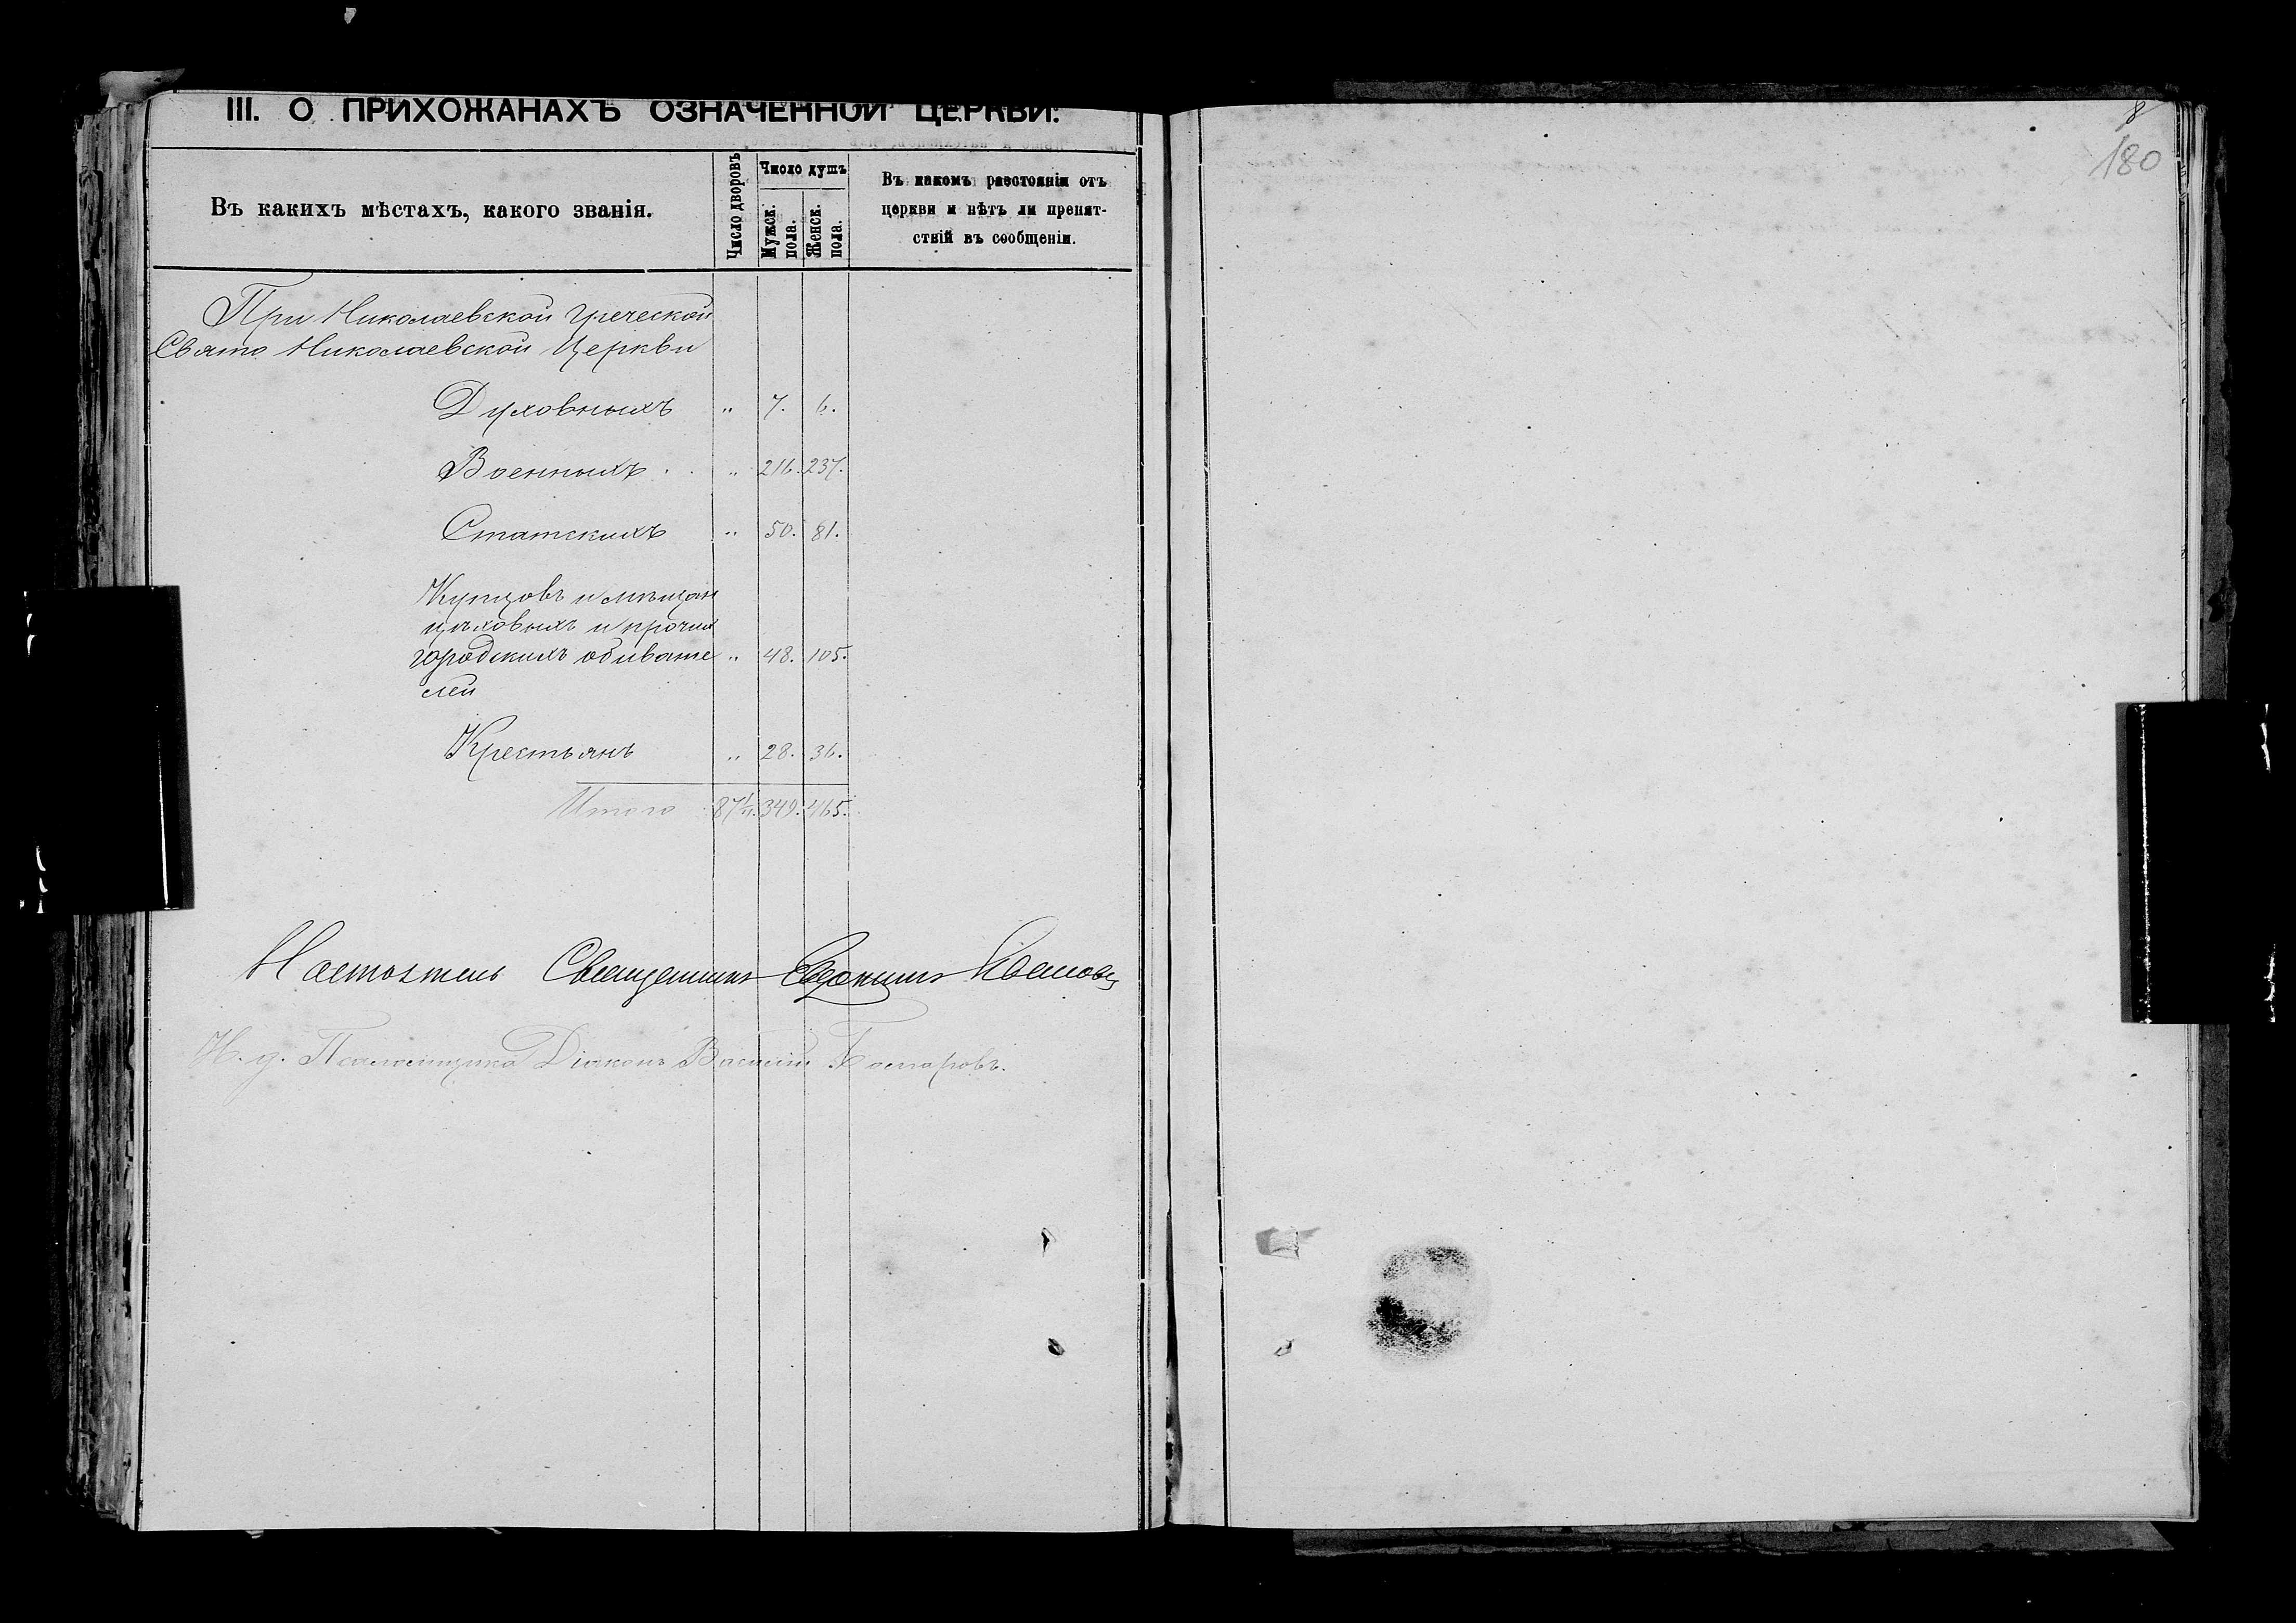 III. О ПРИХОЖАНАХЪ ОЗНАЧЕННОЙ ЦЕРКВИ.
Въ какихъ мѣстахъ, какого званія.
Число дворовъ
Число душъ
Мужск. пола.
Женск. пола.
Въ какомъ разстояніи отъ
церкви и нѣтъ ли препят-
ствій въ сообщеніи.
При Николаевской Греческой
Свято Николаевской Церкви
Духовныхъ " 7. 6.
Военныхъ . . " 216. 237.
Статскихъ " 50. 81.
Купцовъ и мѣщан
цѣховыхъ и прочих
городскихъ обывате " 48. 105.
лей
Крестьянъ " 28. 36.
Итого 87 349. 465.
Настоятель Священникъ Ивановъ
И. д. Псаломщика Діаконъ Василій
8
180